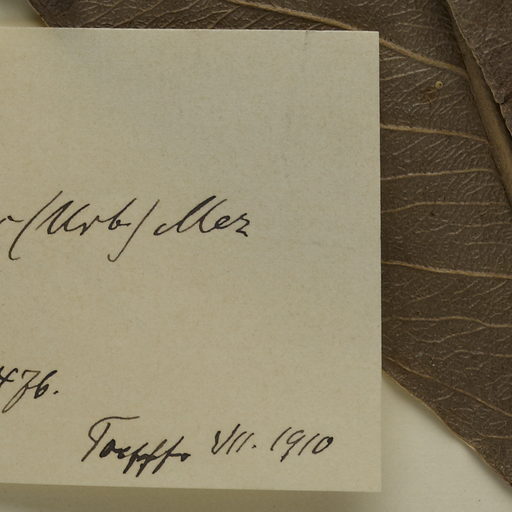 r (Urb) Mez
476.
Toepffr VII. 1910